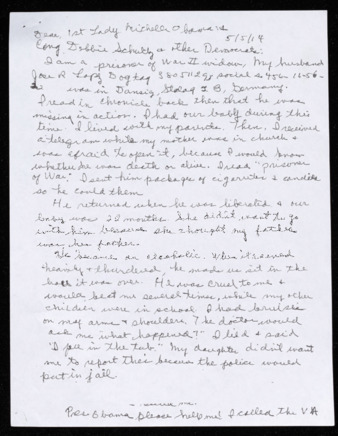 Dear 1st Lady Michelle Obama &
5/5/14
Cong Debbie Schultz & other Democrats:
I am a prisoner of War II widow, My husband
Jose R Lopz Dog tag
was in Danzig, Stalag 2 B, Germany.
I read in chronicle back then that he was
missing in action. I had our baby during this
time I lived with my parents. Then, I received
a telegram while my mother was in church &
was afraid to open it, because I would know
whether he was dead or alive. I read "prisoner
of War." I sent him package of cigarettes & candies
so he could them
He returned when he was liberated & our
baby was 20 months. She didn't want to go
with him because she thought my father
was her father.
He became an alcoholic. When it rained
heavily & thundered, he made us sit in the
hall it was over. He was cruel to me &
would beat me several times, while my other
children were in school. I had bruises
on my arms & shoulders. The doctor would
ask me what happened?" I lied & said
"I fell in the tub." My daughter didn't want
me to report this because the police would
put in jail
Pres Obama please help me! I called the VA